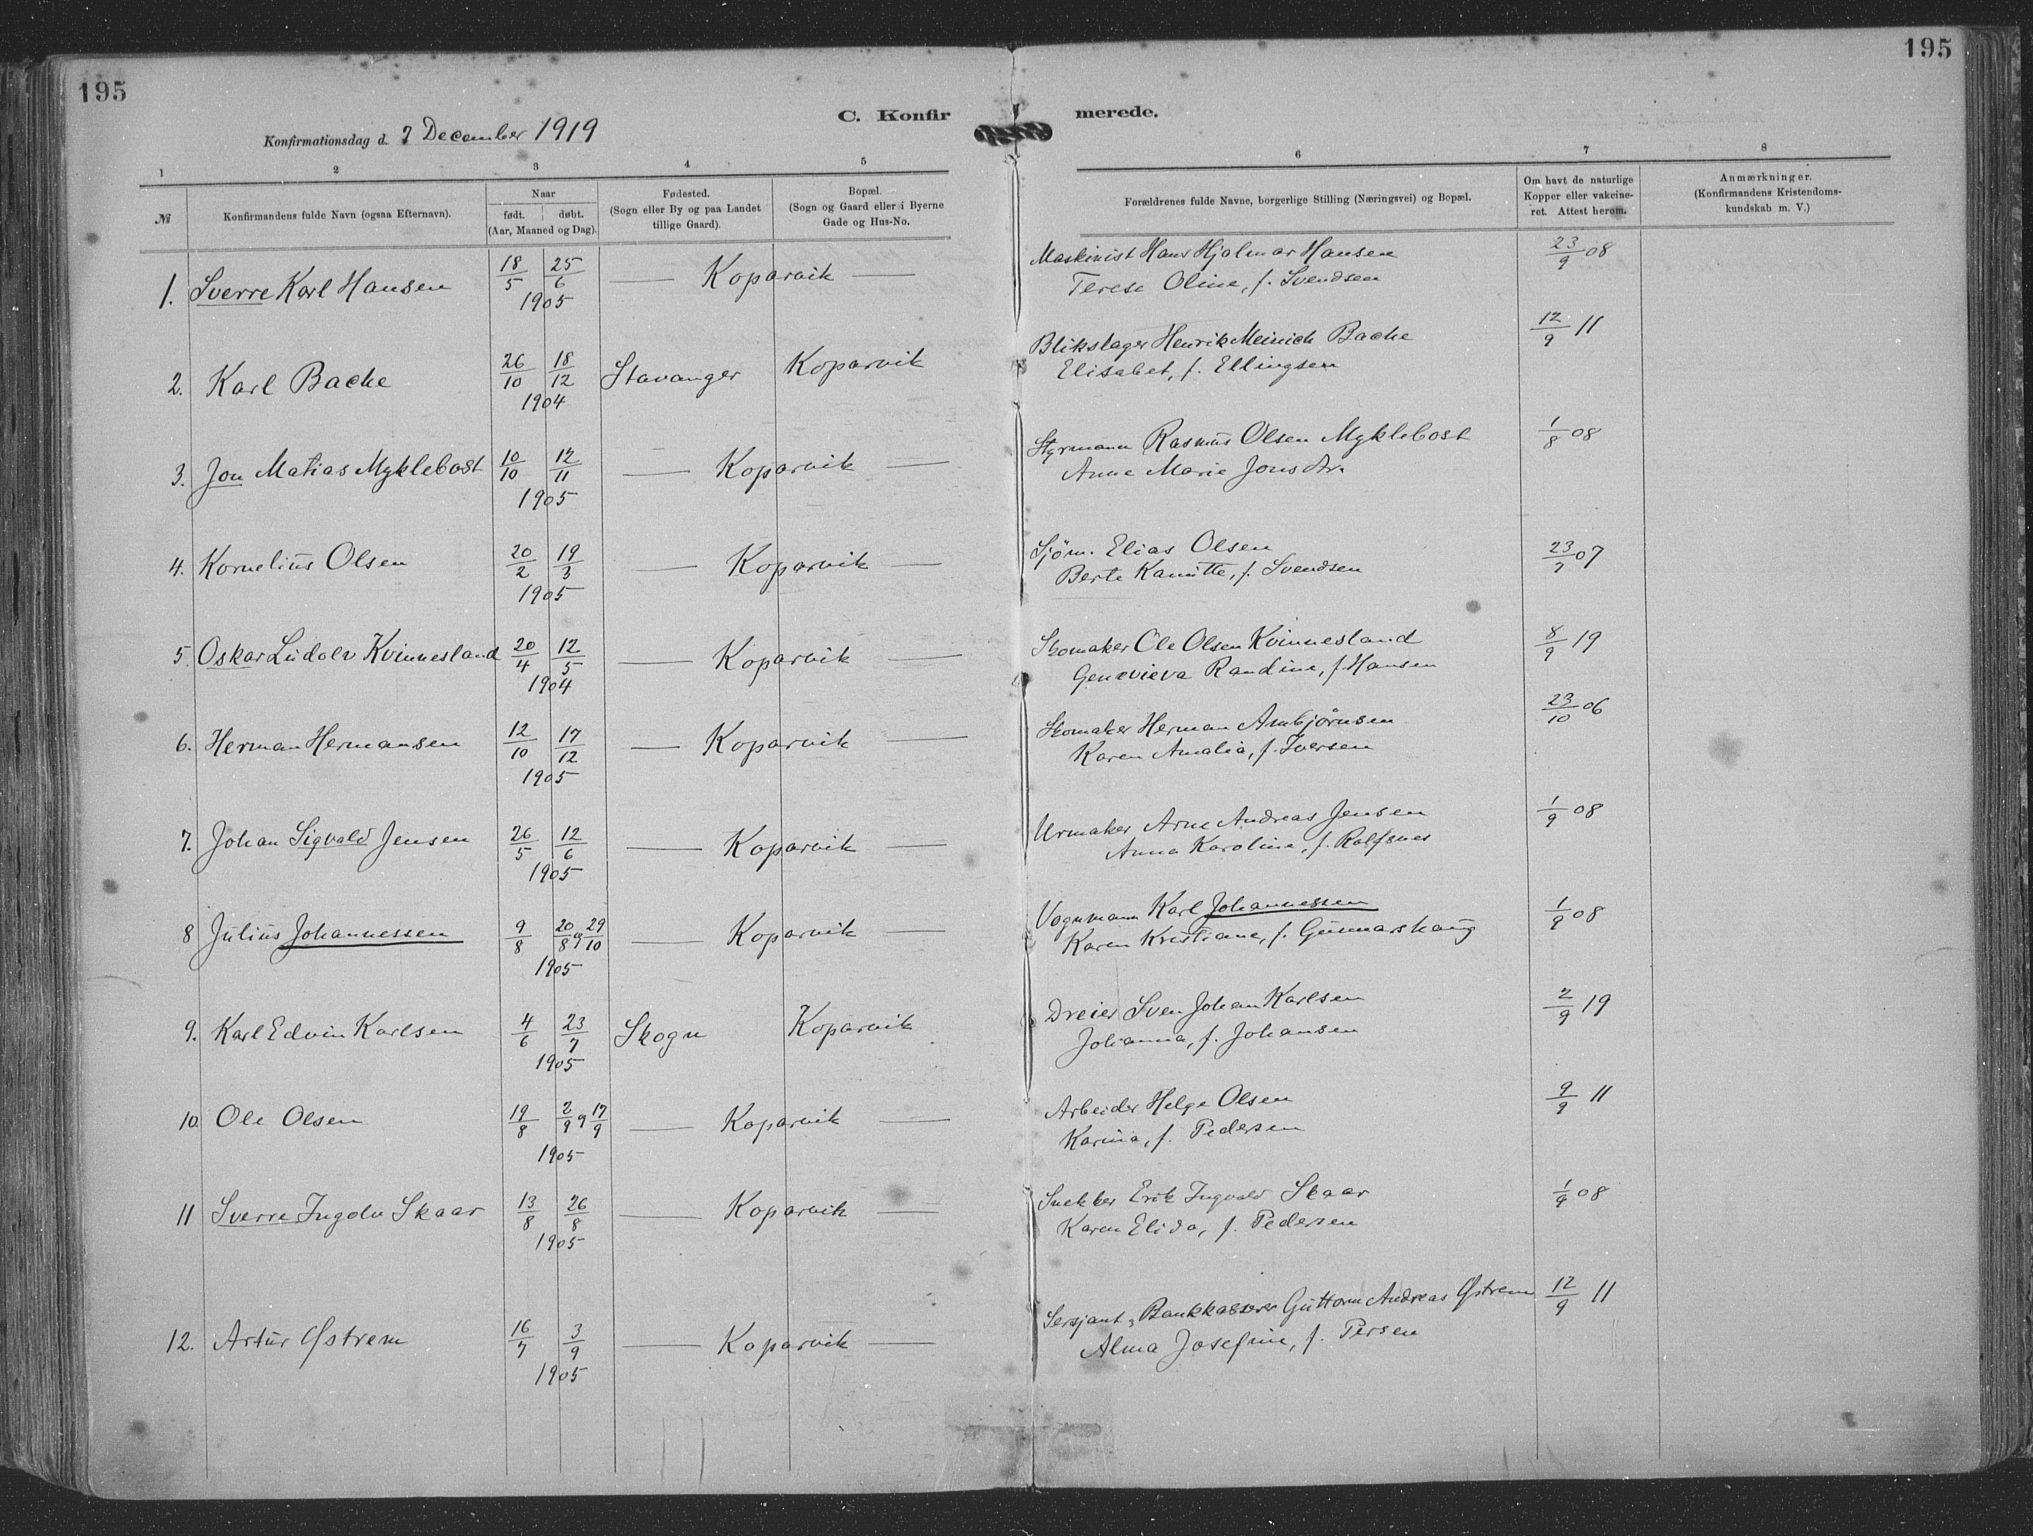 195
195
C. Konfir merede.
Konfirmationsdag d. 7 December 1919
1 2 3 4 5 6 7 8
№
Konfirmandens fulde Navn (ogsaa Efternavn).
Naar
født. døbt.
(Aar, Maaned og Dag).
Fødested.
(Sogn eller By og paa Landet
tillige Gaard).
Bopæl.
(Sogn og Gaard eller i Byerne
Gade og Hus-No.
Forældrenes fulde Navne, borgerlige Stilling (Næringsvei) og Bopæl.
Om havt de naturlige
Kopper eller vakcine-
ret. Attest herom.
Anmærkninger.
(Konfirmandens Kristendoms-
kundskab m. V.)
1. Sverre Karl Hansen 18/5 25/6 1905 — Koparvik —
Maskinist Hans Hjalmar Hansen 23/9 08
Terese Oline, f. Svendsen
2. Karl Bache 26/10 18/12 1904 Stavanger Koparvik
Blikslager Henrik Meinich Bache 12/9 11
Elisabet, f. Ellingsen
3. Jon Matias Myklebost 10/10 12/11 1905 — Koparvik —
Styrmann Rasmus Olsen Myklebost 1/8 08
Anne Marie Jonsdr.
4. Kornelius Olsen 20/2 19/3 1905 — Koparvik —
Sjøm. Elias Olsen 23/7 07
Berte Kamitte, f. Svendsen
5. Oskar Ludolv Kvinnesland 20/4 12/5 1904 — Koparvik —
Skomaker Ole Olsen Kvinnesland 8/9 19
Genovieva Randine, f. Hansen
6. Herman Hermansen 12/10 17/12 1905 — Koparvik —
Skomaker Herman Arnbjørnsen 23/10 06
Karen Amalia, f. Iversen
7. Johan Sigvald Jensen 26/5 12/6 1905 — Koparvik —
Urmaker Arne Andreas Jensen 1/9 08
Anna Karoline, f. Rolfsnes
8 Julius Johannessen 9/8 20/8 og 29/10 1905 — Koparvik —
Vognmann Karl Johannessen 1/9 08
Karen Kristiane, f. Gunnarshaug
9. Karl Edvin Karlsen 4/6 23/7 1905 Skogn Koparvik
Dreier Sven Johan Karlsen 2/9 19
Johanna, f. Johansen
10. Ole Olsen 19/8 2/9 og 17/9 1905 — Koparvik —
Arbeider Helge Olsen 9/9 11
Karina, f. Pedersen
11 Sverre Ingolv Skaar 13/8 26/8 1905 — Koparvik —
Snekker Erik Ingvald Skaar 1/9 08
Karen Elida, f. Pedersen
12. Artur Østrem 16/7 3/9 1905 — Koparvik —
Sersjant, Bankkasserer Guttorm Andreas Østrem 12/9 11
Alma Josefine, f. Persen